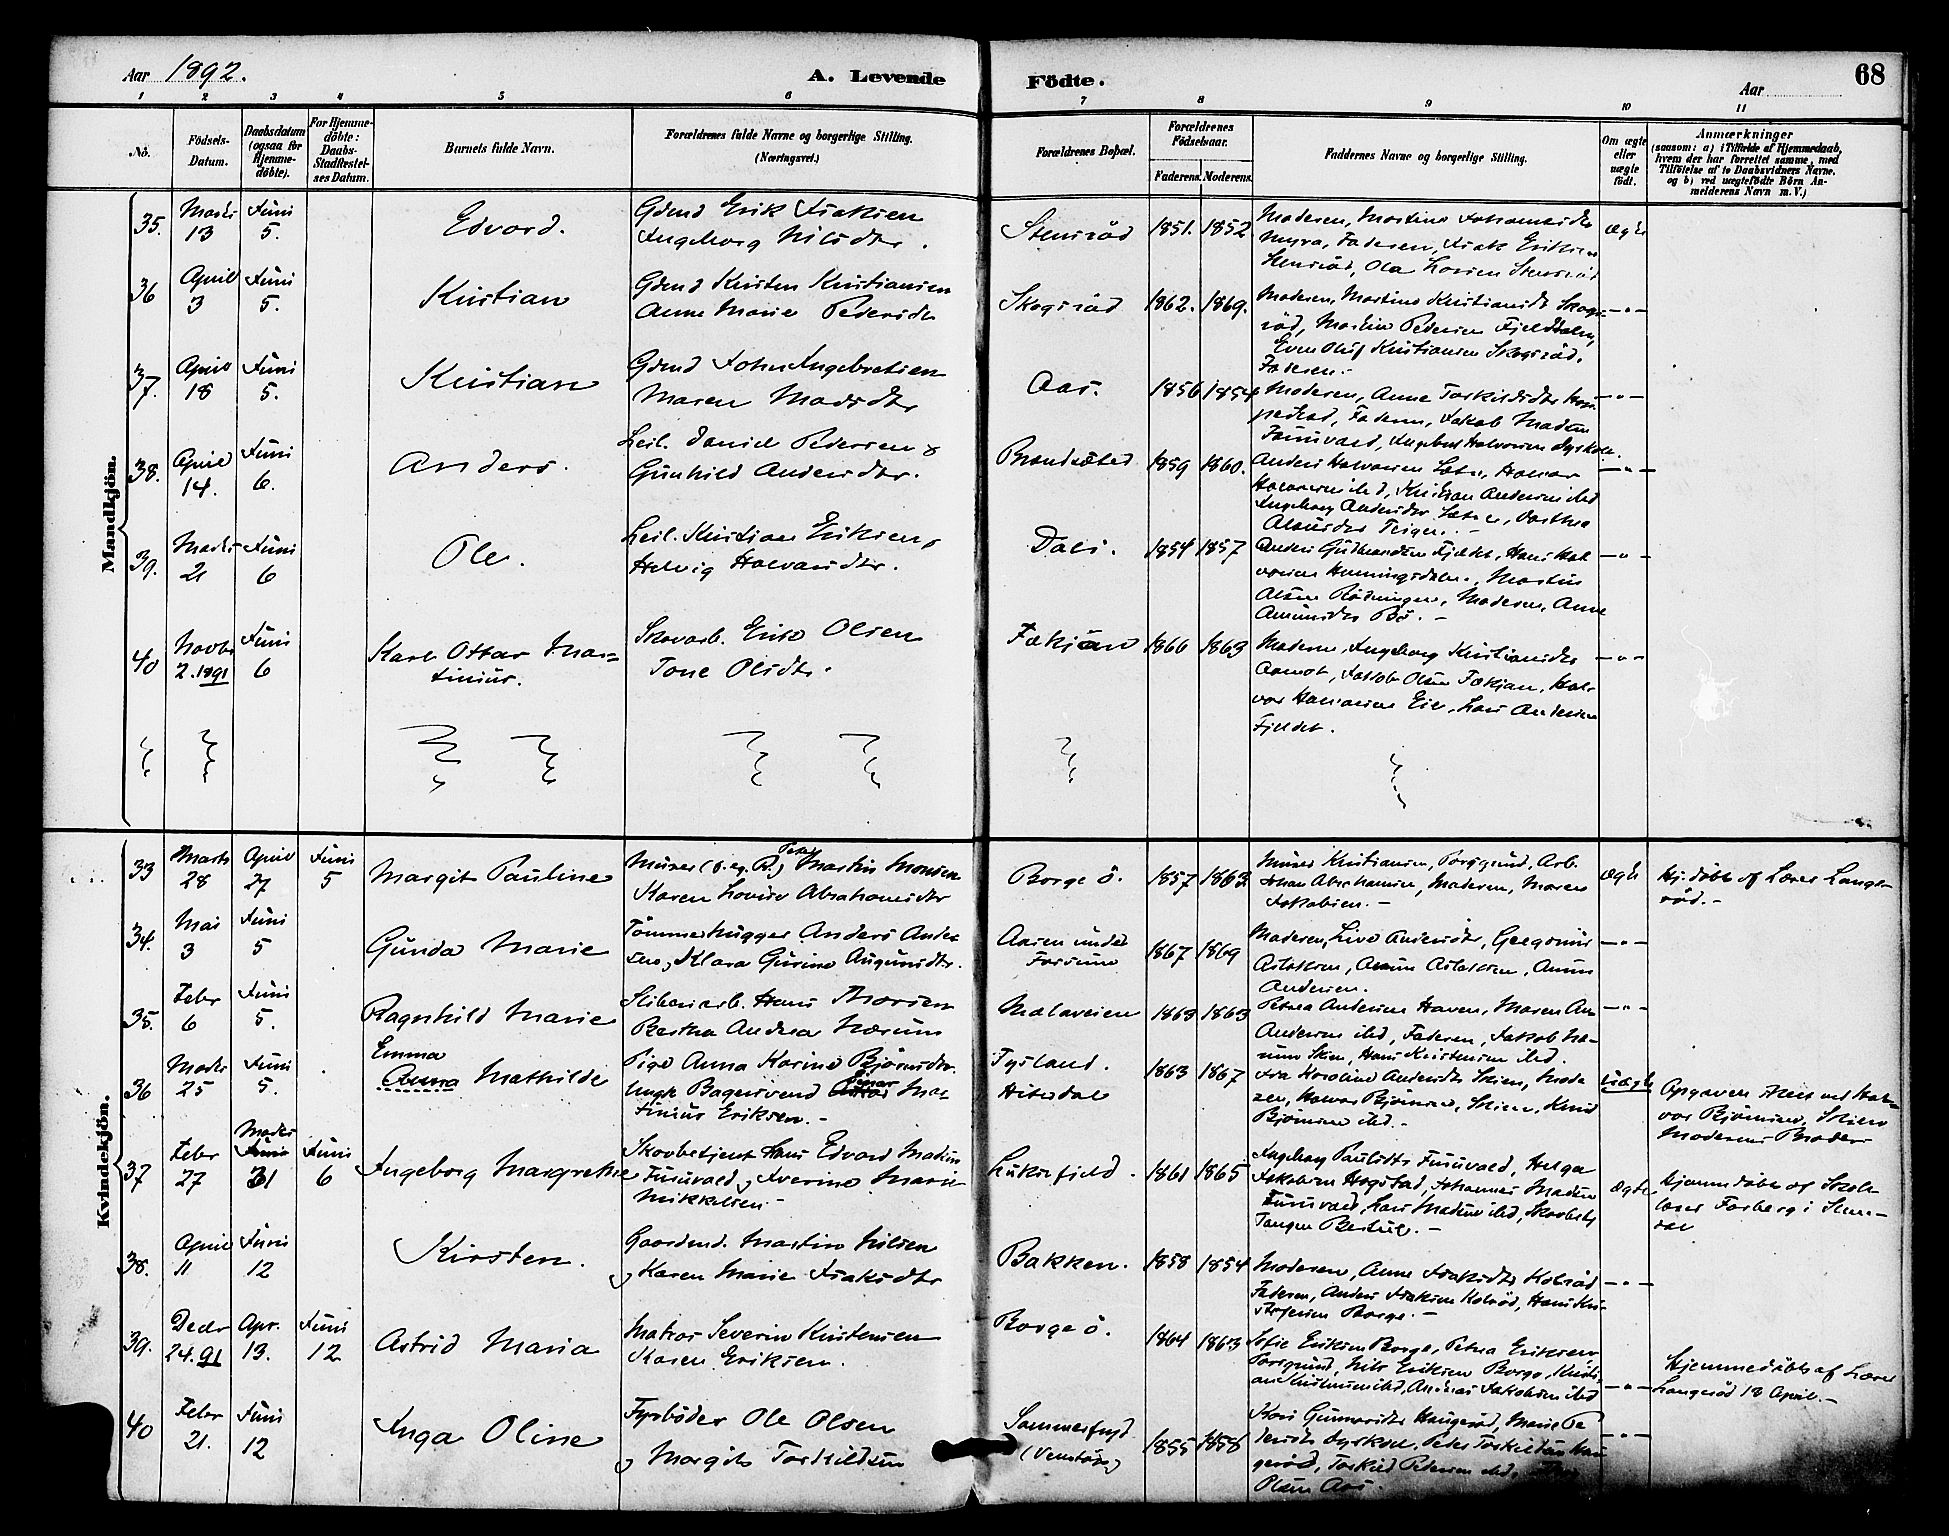 Aar 1892.
A. Levende
Födte.
Aar
68
1 2 3 4 5 6 7 8 9 10 11
No.
Födsels-
Datum.
Daabsdatum
(ogsaa for
Hjemme-
döbte).
For Hjemme-
döbte:
Daabs-
Stadfæstel-
ses Datum.
Barnets fulde Navn.
Forældrenes fulde Navne og borgerlige Stilling.
(Næringsvei.)
Forældrenes Bopæl.
Forældrenes
Födselsaar.
Faderens. Moderens.
Faddernes Navne og borgerlige Stilling.
Om ægte
eller
uægte
födt.
Anmærkninger
(saasom: a) i Tilfælde af Hjemmedaab,
hvem der har forrettet samme, med
Tilföielse af to Daabsvidners Navne.
og b) ved uægtefödte Börn An-
melderens Navn m. V.)
Mandkjön.
35. Marts 13 Juni 5. Edvard.
Gdmd Erik Isaksen
Ingeborg Nilsdtr.
Stensröd 1851. 1852
Moderen, Martine Johannesdtr
Myra, Faderen, Isak Eriksen
Stensröd, Ola Larsen Stensröd
ægte
36 April 3 Juni 5. Kristian
Gdmd Kristen Kristiansen
Anne Marie Pedersdtr
Skogsröd 1862. 1869.
Moderen, Martine Kristiansdt Skogs-
röd, Martin Pedersen Fjeldalen,
Even Oluf Kristiansen Skogsröd,
Faderen.-
-"-
37. April 18 Juni 5. Kristian
Gdmd John Ingebretsen
Maren Madsdtr
Aas. 1856 1854
Moderen, Anne Torkildsdtr
Faderen, Jakob Madsen
Furuvald, Ingebret Halvorsen
-"-
38. April 14. Juni 6. Anders.
Leil. Daniel Pedersen &
Gunhild Andersdtr.
Brandsæted 1859 1860.
Anders Halvorsen Halvor
Halvorsen ibd, Kristian Andersen ibd
Ingeborg Andersdtr Dorthea
Teigen.-
-"-
39. Marts 21 Juni 6 Ole.
Leil. Kristian Eriksen,
Helvig Halvorsdtr.
Dals. 1854 1857
Anders Gulbrandsen Fjeldet, Hans Hal-
vorsen Henningsdalen, Martin
Olsen Rödningen, Moderen, Anne
Amundsdtr Bö.-
-"-
40 Novbr 2. 1891 Juni 6 Karl Ottar Mar-
tinius.
Skovarb. Erik Olsen
Tone Olsdtr.
Fækjan 1866 1863
Moderen, Ingeborg Kristiansdtr
Aamot, Jakob Olsen Fækjan, Hal-
vor Halvorsen Eie, Lars Andersen
Fjeldet.
-"-
Kvindekjön.
33 Marts 28 April 27 Juni 5 Margit Pauline
Murer Peter Martin Monsen
Karen Lovise Abrahamsdtr
Borge ö. 1857 1863
Murer Kristiansen, Porsgrund, Arb.
Johan Abrahamsen, Moderen, Maren
Jakobsen.-
ægte
Hj. döbt af Lærer Lange-
röd.-
34. Mai 3 Juni 5 Gunda Marie
Tömmerhugger Anders Ander-
sen, Klara Gurine Augunsdtr.
Aasen under
Fossum
1867 1869
Moderen, Live Andersdtr, Gregorius
Aslaksen, Amun Aslaksen, Amun
Andersen.
-"-
35. Febr 6 Juni 5. Ragnhild Marie
Sliberiarb. Hans Thorsen
Bertha Andrea Næsum
Mælaveien 1863 1863
Petrea Andersen Haven, Maren An.
Andersen ibd, Faderen, Jakob Næ-
sum Skien, Hans Kristensen ibd.
-"-
36 Marts 25 Juni 5. Emma
Anna Mathilde
Pige Anna Karine Björnsdtr.
Ungk Einar Mar-
tinius Eriksen.-
Tysland.
Hiterdal
1863 1867
Fra Karoline Andersdtr Skien, Mode-
ren, Halvor Björnsen, Skien, Knud
Björnsen ibd.-
uægte
Opgaven skeet ved Hal-
vor Björnsen, Skien
Moderens Broder
37 Febr 27 Marts 31 Juni 6 Ingeborg Margrethe
Skovbetjent Hans Edvard Madsen
Furuvald, Iverine Marie
Mikkelsen.-
Luksefjeld. 1861 1865
Ingeborg Paulsdtr Furuvald, Helga
Jakobsen Hogstad, Johannes Madsen
Furuvald, Lars Madsen ibd, Skovbetj
Tangen Bestul.-
ægte
Hjemmedöbt af Skole-
lærer Forberg i Slem-
dal
38. April 11 Juni 12 Kirsten.
Gaardmd. Martin Nilsen
& Karen Marie Isaksdtr
Bakken. 1858 1854
Moderen, Anne Isaksdtr Kolsröd
Faderen, Anders Isaksen Kolsröd, Hans Kri-
stofersen Borge.-
-"-
39. Decbr 24. 91 Apr. 13. Juni 12 Astrid Maria
Matros Severin Kristensen
Karen Eriksen.
Borge ö. 1864 1863
Sofie Eriksen Borge, Petrea Eriksen
Porsgrund, Nils Eriksen Borge, Kristi-
ane Kristensen ibd, Andreas Jakobsen ibd
-"-
Hjemmedöbt af Lærer
Langeröd 13 April.-
40 Febr 21. Juni 12 Inga Oline
Fyrböder Ole Olsen
& Margit Torkildsen
Sommerfryd
(Venstöb)
1855 1858
Kari Gunnarsdtr Haugeröd, Marie Pe-
dersdtr Peder Torkildsen Hau-
geröd, Torkild Pedersen ibd,
Olsen Aas.
-"-